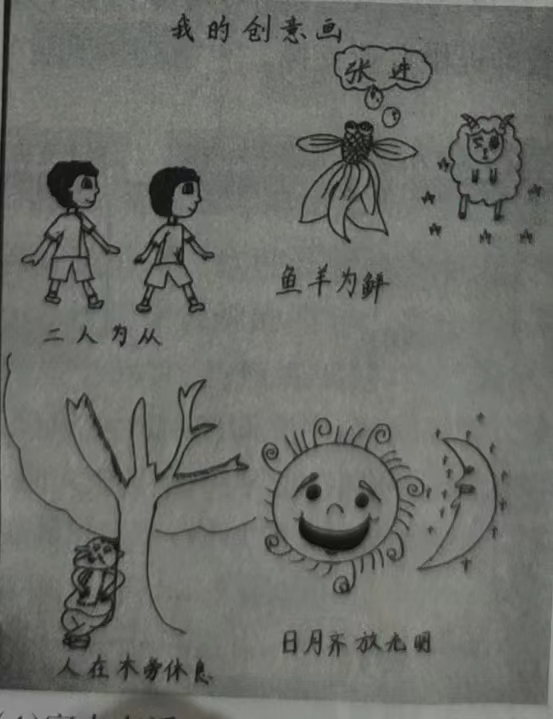 我的创意画
张进
二人为从
鱼羊为鲜
人在木旁休息
日月齐放光明